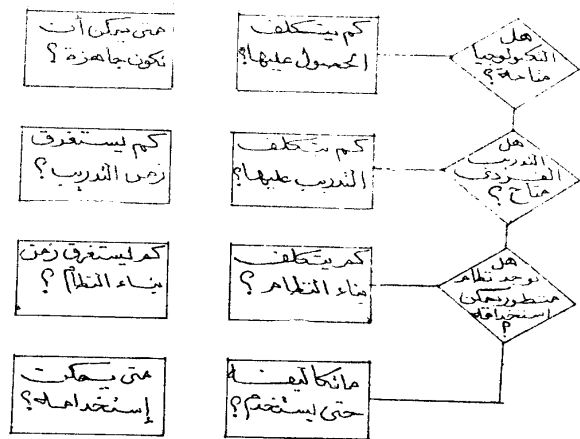 هل
التكنولوجيا
متاحة؟
كم يتكلف
الحصول عليها؟
متى يمكن أن
تكون جاهزة؟
هل
التدريب
الفردي
متاح؟
كم يتكلف
التدريب عليها؟
كم يستغرق
زمن التدريب؟
هل
توجد نظام
متطور يمكن
استخدامه
؟
كم يتكلف
بناء النظام؟
كم يستغرق زمن
بناء النظام؟
ما تكاليفه
حتى يستخدم؟
متى يمكن
إستخدامه؟